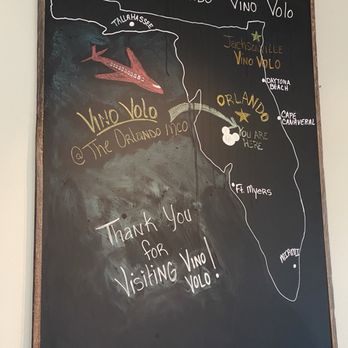 VINO VOLO
TALLAHASSEE
Jacksonville
VINO VOLO
DAYTONA
BEACH
ORLANDO
CAPE
CANAVERAL
VINO VOLO
@ THE ORLANDO MCO
YOU ARE
HERE
FT. MYERS
THANK YOU
FOR
VISITING VINO
VOLO!
MIAMI